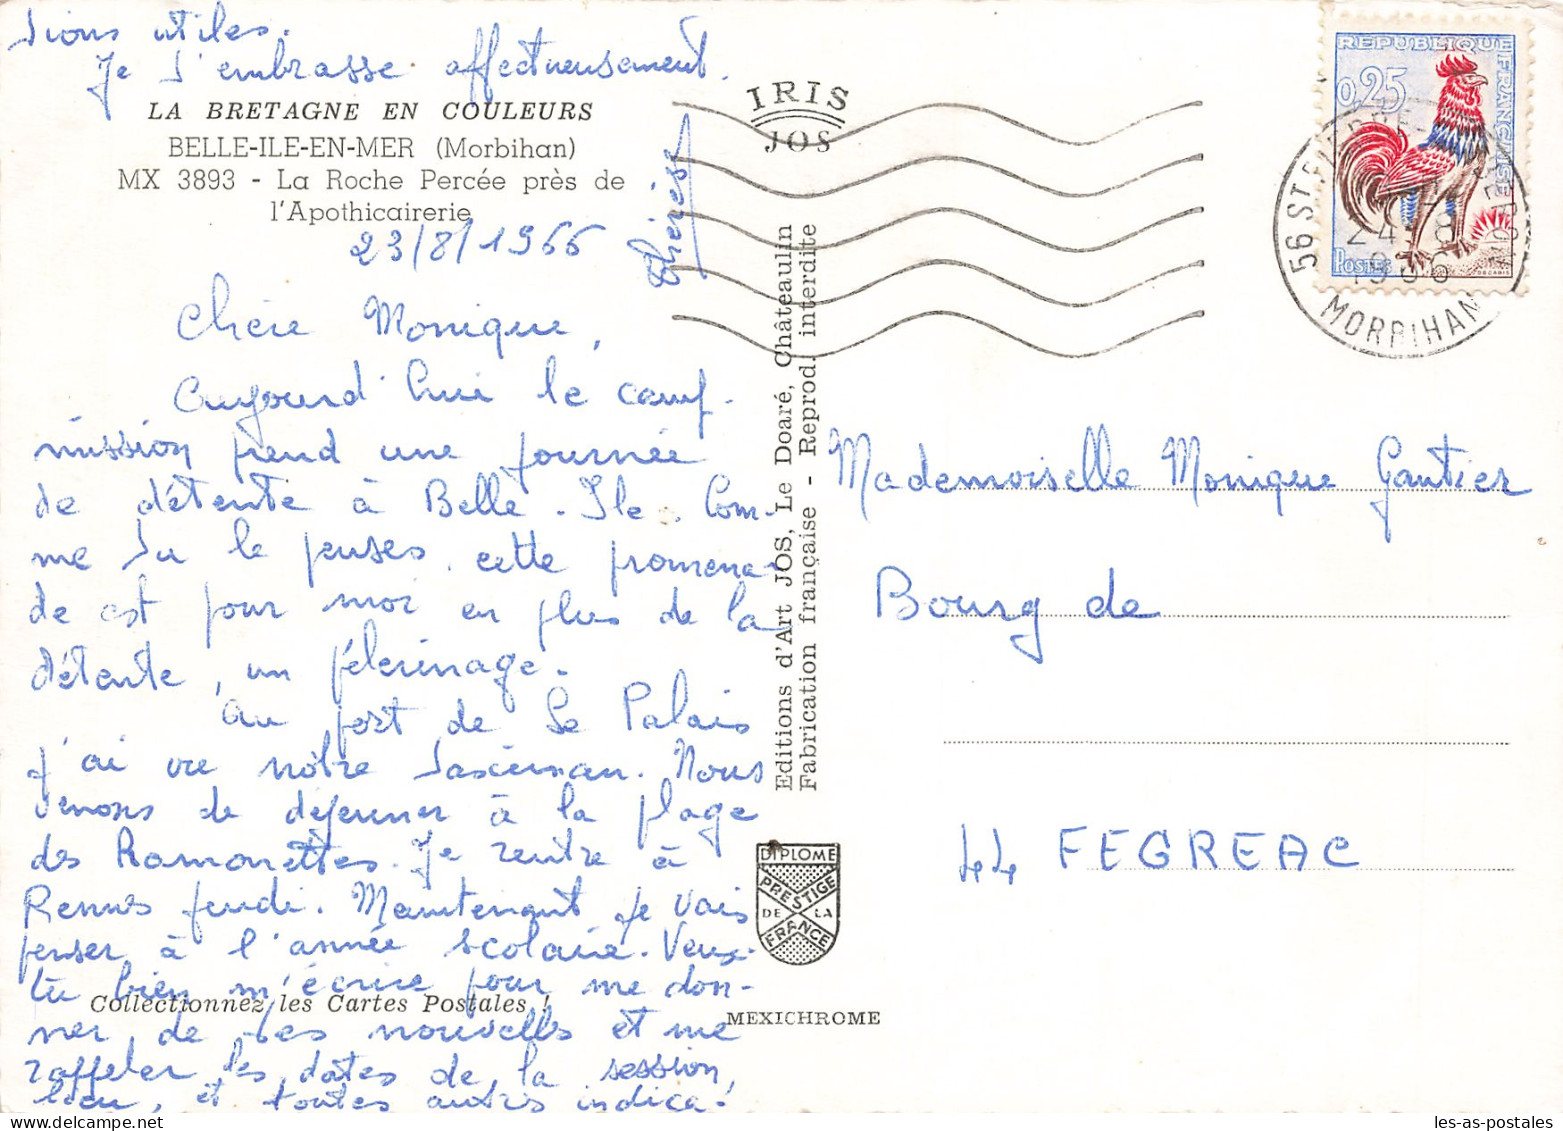 tions utiles.
Je t'embrasse affectueusement.
Thérèse
LA BRETAGNE EN COULEURS
BELLE-ILE-EN-MER (Morbihan)
MX 3893 - La Roche Percée près de
l'Apothicairerie
23/8/1966
Chère Monique,
Aujourd'hui le camp-
mission prend une journée
de détente à Belle-Ile. Com-
me tu le penses, cette promena-
de est pour moi en plus de la
détente, un pélerinage.
Au port de Le Palais
j'ai vu nôtre
Nous
venons de déjeuner à la plage
des Ramonettes. Je rentre à
Rennes jeudi. Maintenant je vais
penser à l'année scolaire. Veux-
tu bien m'écrire pour me don-
ner de tes nouvelles et me
rappeler les dates de la session,
lieu, et toutes autres indica-
Collectionnez les Cartes Postales !
IRIS
JOS
Editions d'Art JOS, Le Doaré, Châteaulin
Fabrication française - Reprod. interdite
DIPLOME
PRESTIGE
DE LA
FRANCE
MEXICHROME
REPUBLIQUE FRANÇAISE
0,25
POSTES
DECARIS
56 ST PIERRE QUIBERON
24-8
1966
MORBIHAN
Mademoiselle Monique Gautier
Bourg de
44 FEGREAC
les-as-postales